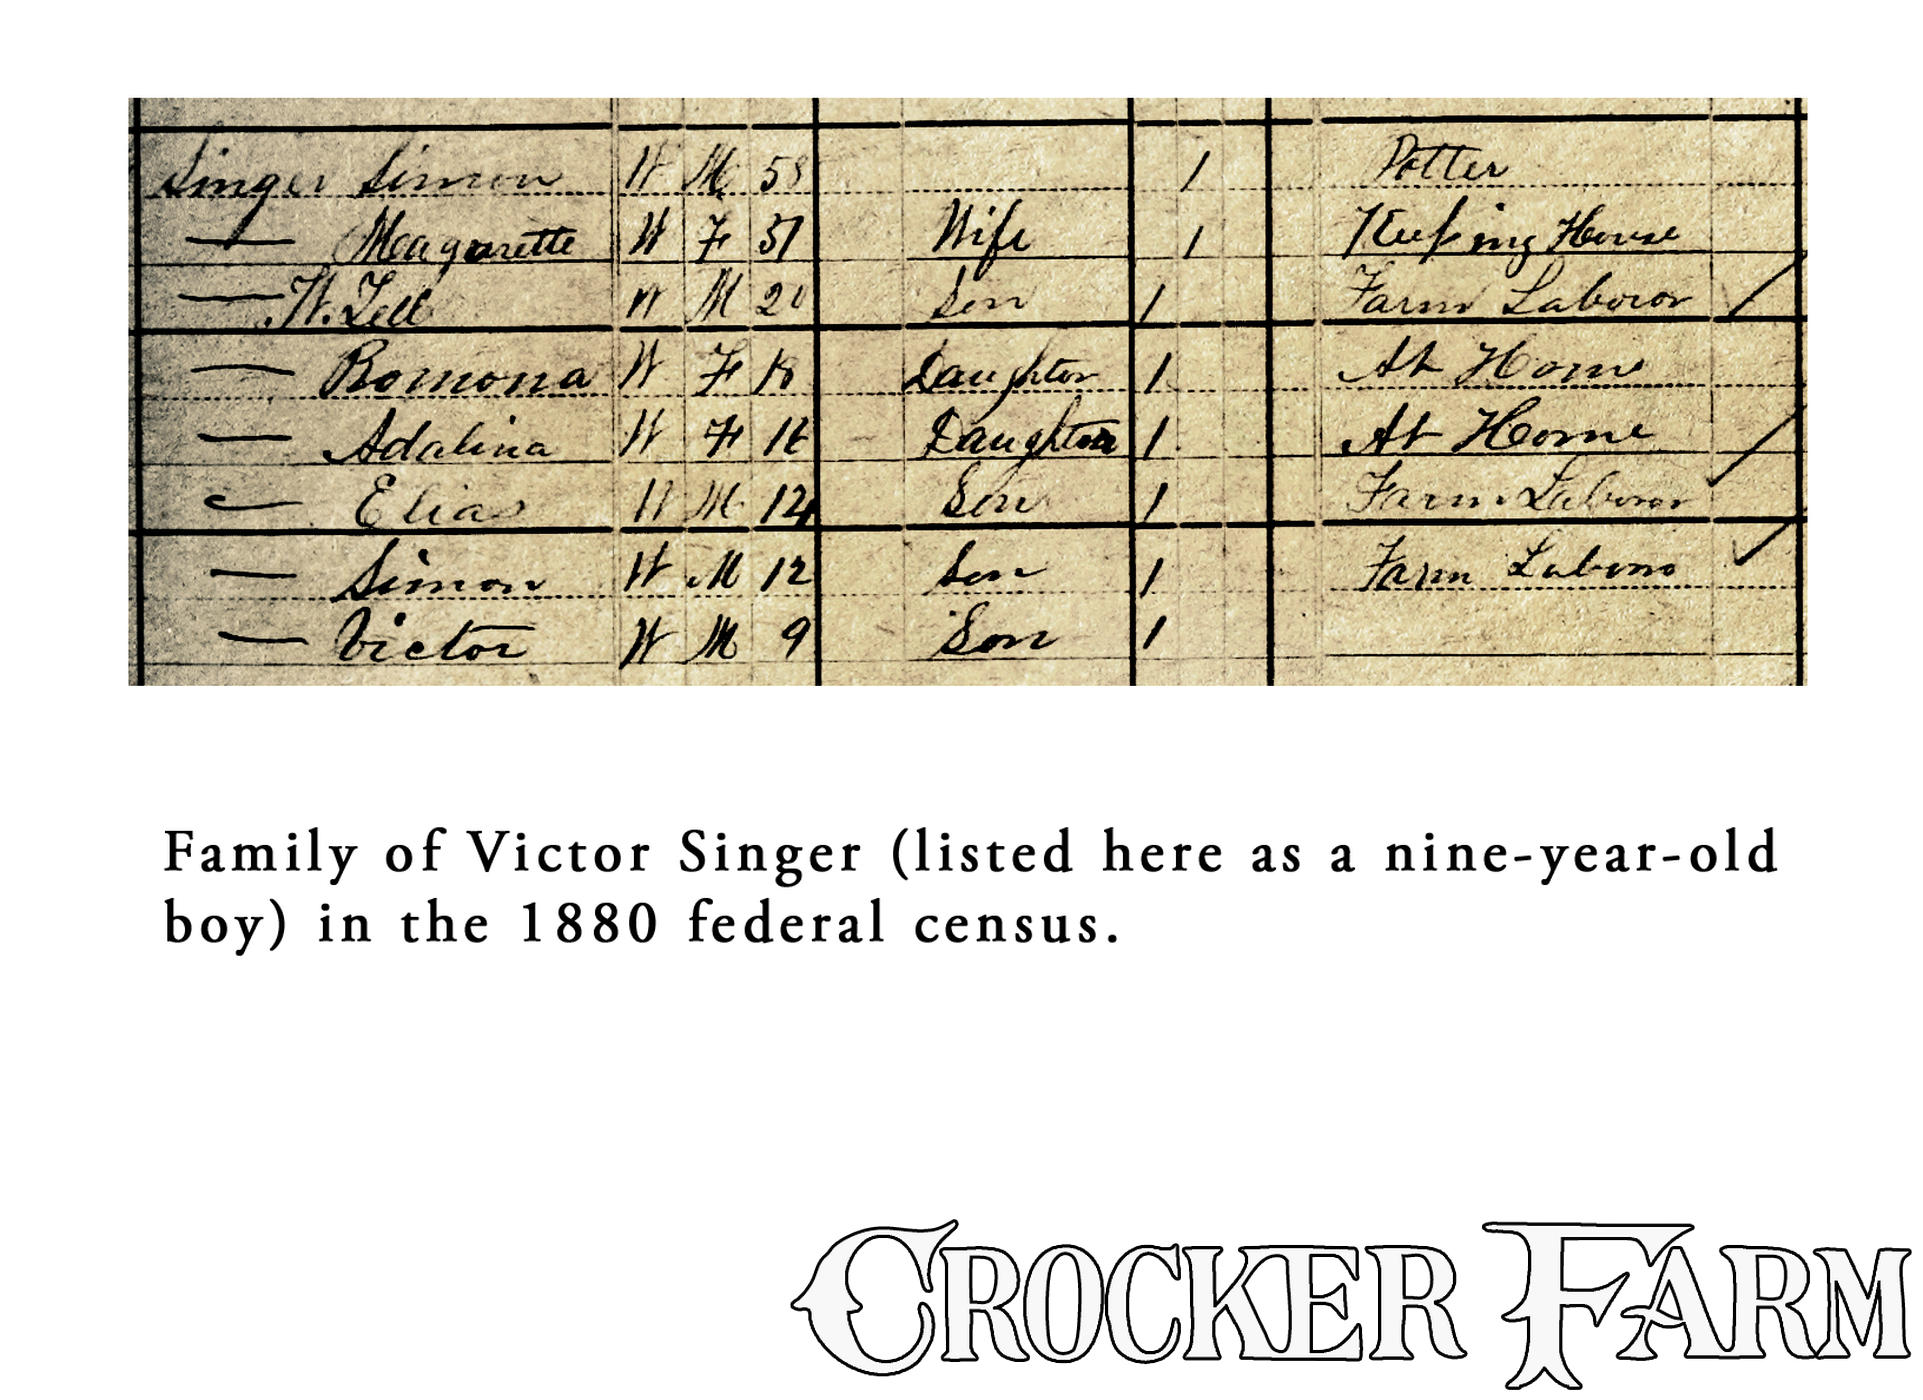 Singer Simon W M 58 1 Potter
— Meagarette W F 51 Wife 1 Keeping House
— W. Tell W M 20 Son 1 Farm Laboror
— Romona W F 18 Daughter 1 At Home
— Adalina W F 16 Daughter 1 At Home
— Elias W M 14 Son 1 Farm Laboror
— Simon W M 12 Son 1 Farm Laboror
— Victor W M 9 Son 1
Family of Victor Singer (listed here as a nine-year-old
boy) in the 1880 federal census.
CROCKER FARM